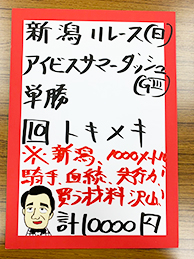 新潟11レース(日)
アイビスサマーダッシュ
(GIII)
単勝
10 トキメキ
※新潟、1000メートル
騎手、血統、
買う材料沢山!
計10000円